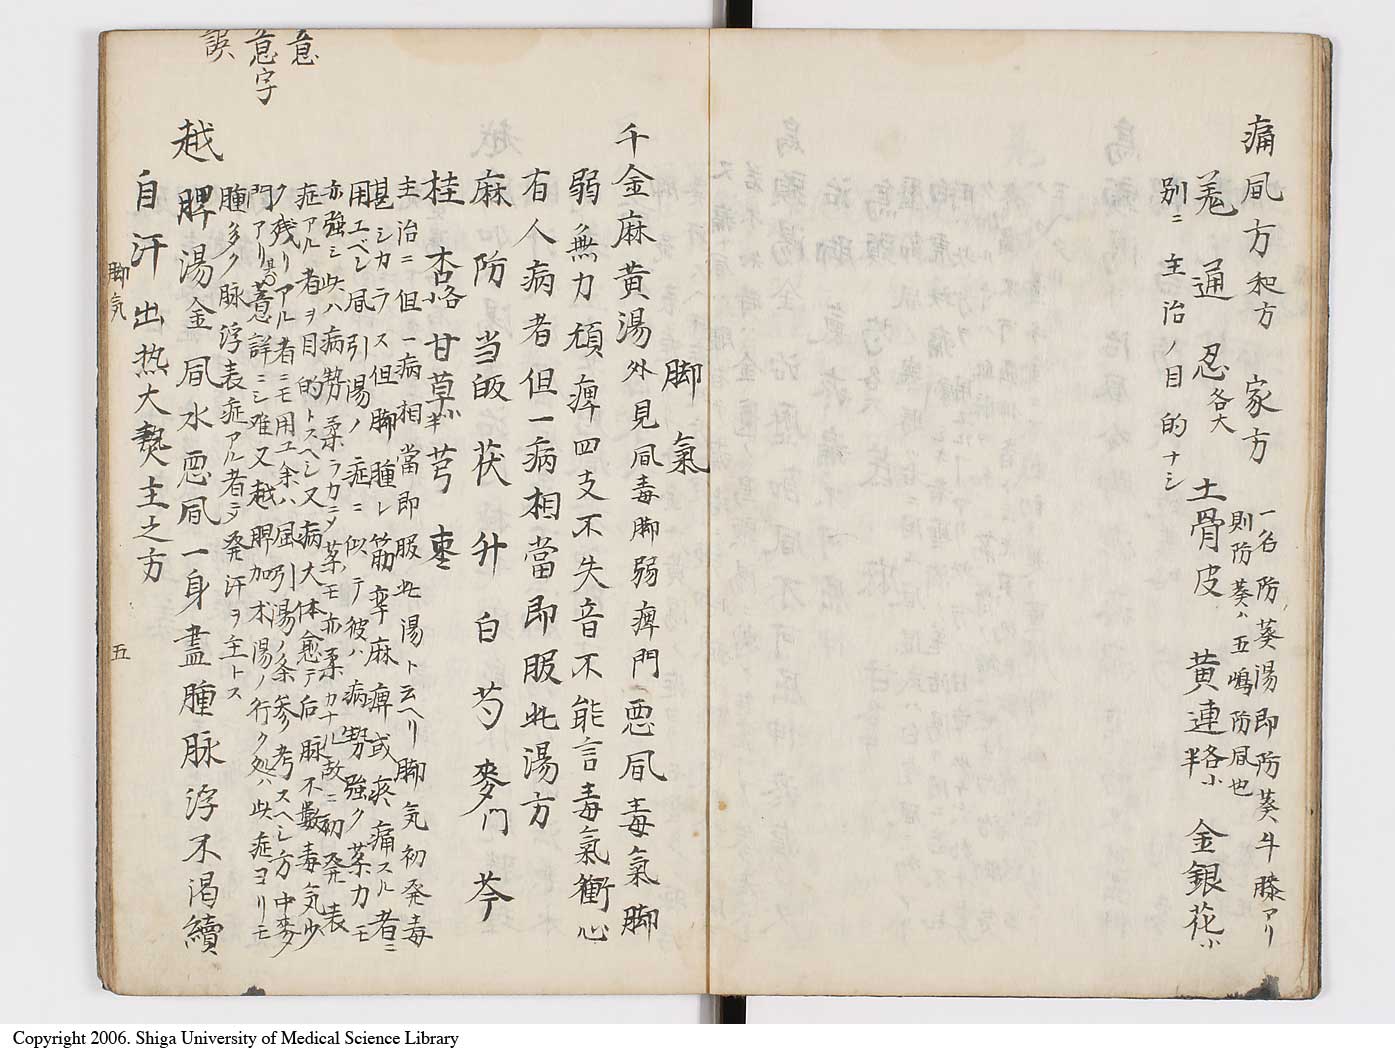 痛凮方 和方 家方 一名防葵湯即防葵牛膝アリ
則防葵ハ五嶋防凮也
羗 通 忍各大 土骨皮 黄連各小半 金銀花小
別ニ主治ノ目的ナシ
脚氣
千金麻黄湯 外見凮毒脚弱痺門 悪凮毒氣脚
弱無力頑痺四支不失音不能言毒氣衝心
有人病者但一病相當即服此湯方
麻 防 当皈 茯 升 白 芍 麥門 芩
桂 杏各小 甘草小半 芎 棗
主治ニ但一病相當即服此湯ト云ヘリ脚気初発毒
甚シカラス但脚腫レ筋孿麻痺或疼痛スル者ニ
用ユベシ凮引湯ノ症ニ似テ彼ハ病勢強ク薬力モ
亦強シ此ハ病勢柔ラカニメ薬モ亦柔カナル故ニ初発表
症アル者ヲ目的トスヘシ又病大体愈テ后脉不數毒気少
ク残リアル者ニモ用ユ余ハ凮引湯ノ条参考スヘシ方中麥
門アリ其薏詳ニシ难又越脾加朮湯ノ行ク処ハ此症ヨリモ
腫多ク脉浮表症アル者ニテ発汗ヲ主トス
越脾湯 金凮水悪凮一身盡腫脉浮不渇續
自汗出热大𤍠主之方
意
薏字
誤
脚気
五